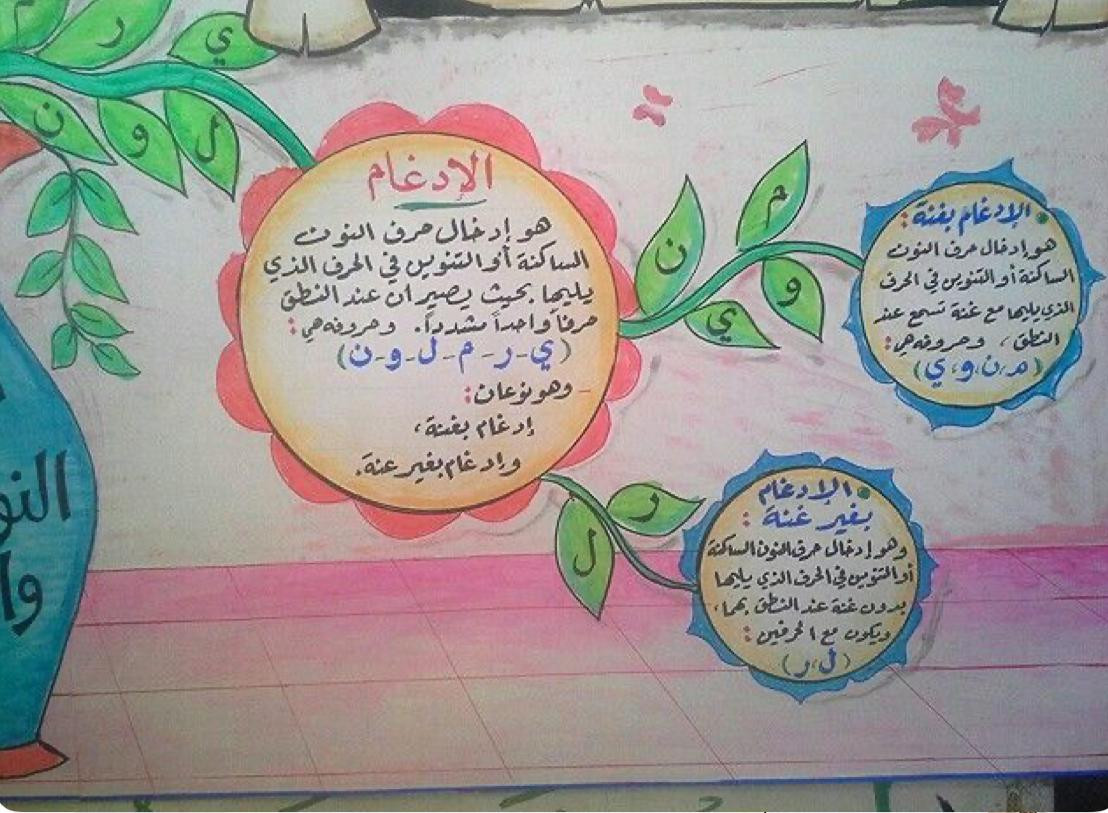 ي
ر
م
ن
و
ل
الإدغام
هو إدخال حرف النون
الساكنة أو التنوين في الحرف الذي
يليها بحيث يصيران عند النطق
حرفاً واحداً مشدداً. وحروفه هي:
(ي-ر-م-ل-و-ن)
- وهو نوعان:
إدغام بغنة،
وإدغام بغير غنة.
م
ن
و
ي
الإدغام بغنة:
هو إدخال حرف النون
الساكنة أو التنوين في الحرف
الذي يليها مع غنة تسمع عند
النطق، وحروفه هي:
(م، ن، و، ي)
ر
ل
الإدغام
بغير غنة:
وهو إدخال حرف النون الساكنة
أو التنوين في الحرف الذي يليها
بدون غنة عند النطق بهما،
ويكون مع الحرفين:
(ل، ر)